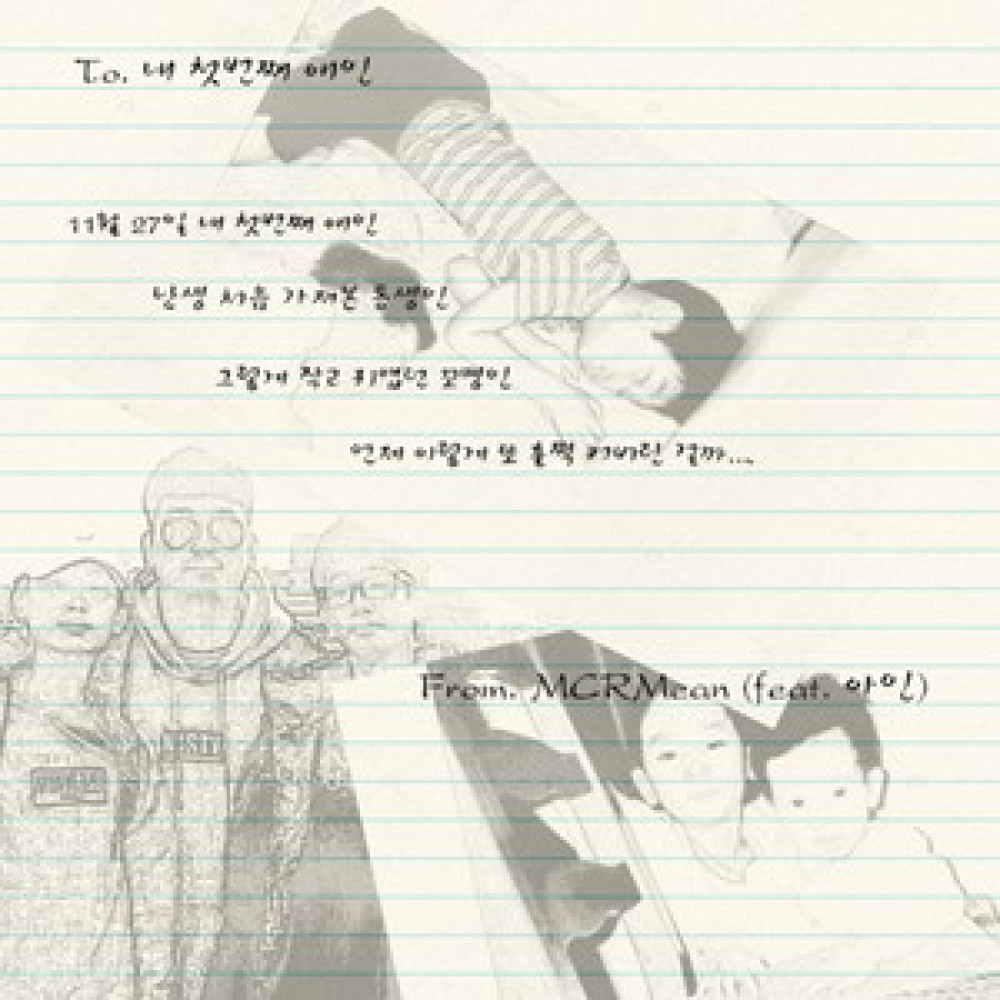 To. 내 첫번째 애인
11월 27일 내 첫번째 애인
난생 처음 가져본 동생인
그렇게 작고 귀엽던 꼬맹인
언제 이렇게 또 훌쩍 커버린 걸까...
From. MCRMean (feat. 아인)